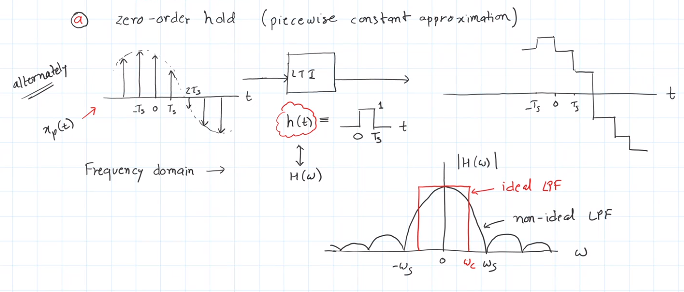 ⓐ zero-order hold (piecewise constant approximation)
alternately
x_p(t)
-T_s 0 T_s 2T_s t
LTI
h(t) ≡ 1 0 T_s t
H(ω)
-T_s 0 T_s t
Frequency domain →
|H(ω)|
ideal LPF
non-ideal LPF
-ω_s 0 ω_c ω_s ω